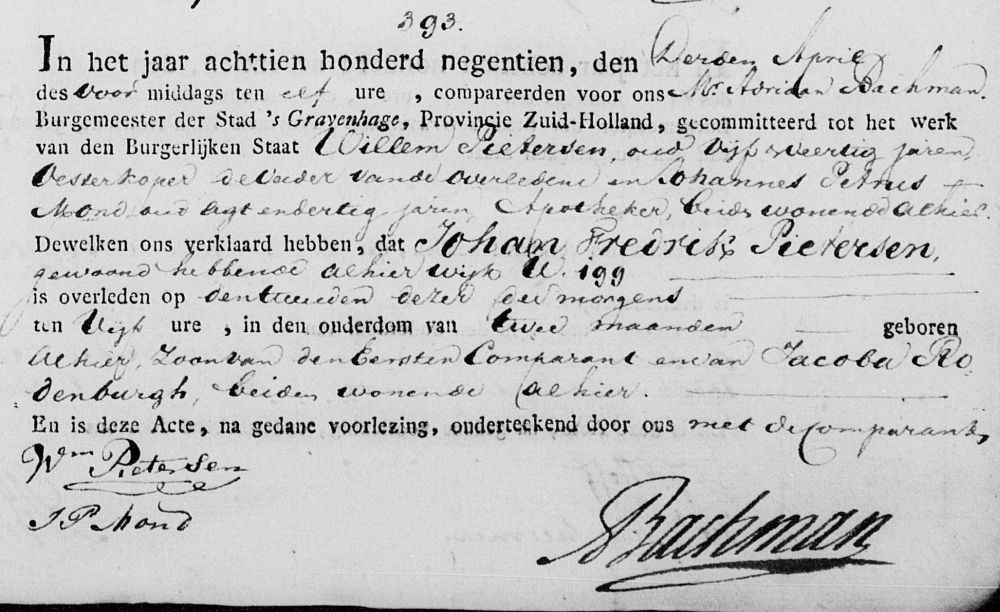 393.
In het jaar achttien honderd negentien, den Derden April
des voor middags ten elf ure , compareerden voor ons Mr. Adriaan Bachman.
Burgemeester der Stad 's Gravenhage, Provincie Zuid-Holland, gecommitteerd tot het werk
van den Burgerlijken Staat Willem Pietersen, oud vijf en veertig jaren,
Oesterkoper de Vader van de overledene en Johannes Petrus
Mond, oud agt en dertig jaren, Apotheker, beide wonende alhier.
Dewelken ons verklaard hebben, dat Johan Fredrik Pietersen,
gewoond hebbende alhier wijk U. 199
is overleden op den tweeden dezer des morgens
ten Vijf ure , in den ouderdom van twee maanden geboren
alhier, Zoon van den Eersten Comparant en van Jacoba Ro
denburgh, beiden wonende alhier.
En is deze Acte, na gedane voorlezing, onderteekend door ons met de Comparanten
Wm Pietersen
J P Mond
A Bachman